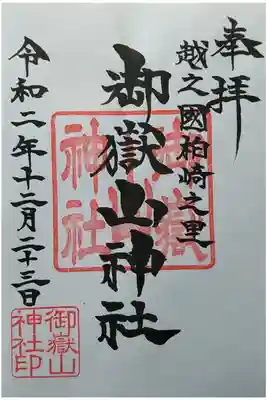 奉拝
越之國柏崎之里
御嶽山神社
令和二年十二月二十三日
御嶽山
神社
御嶽山
神社印